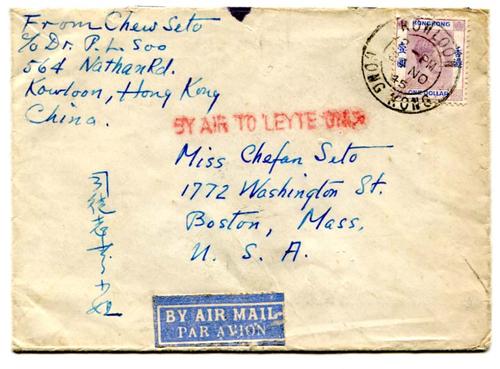 From Chew Seto
c/o Dr. P. L. Soo
564 Nathan Rd.
Kowloon, Hong Kong
China.
HONGKONG
壹圓
香港
ONE DOLLAR
KOWLOON
PM
NO
45
HONG KONG
BY AIR TO LEYTE ONLY
Miss Chefan Seto
1772 Washington St.
Boston, Mass.
U. S. A.
司徒
小姐
BY AIR MAIL
PAR AVION